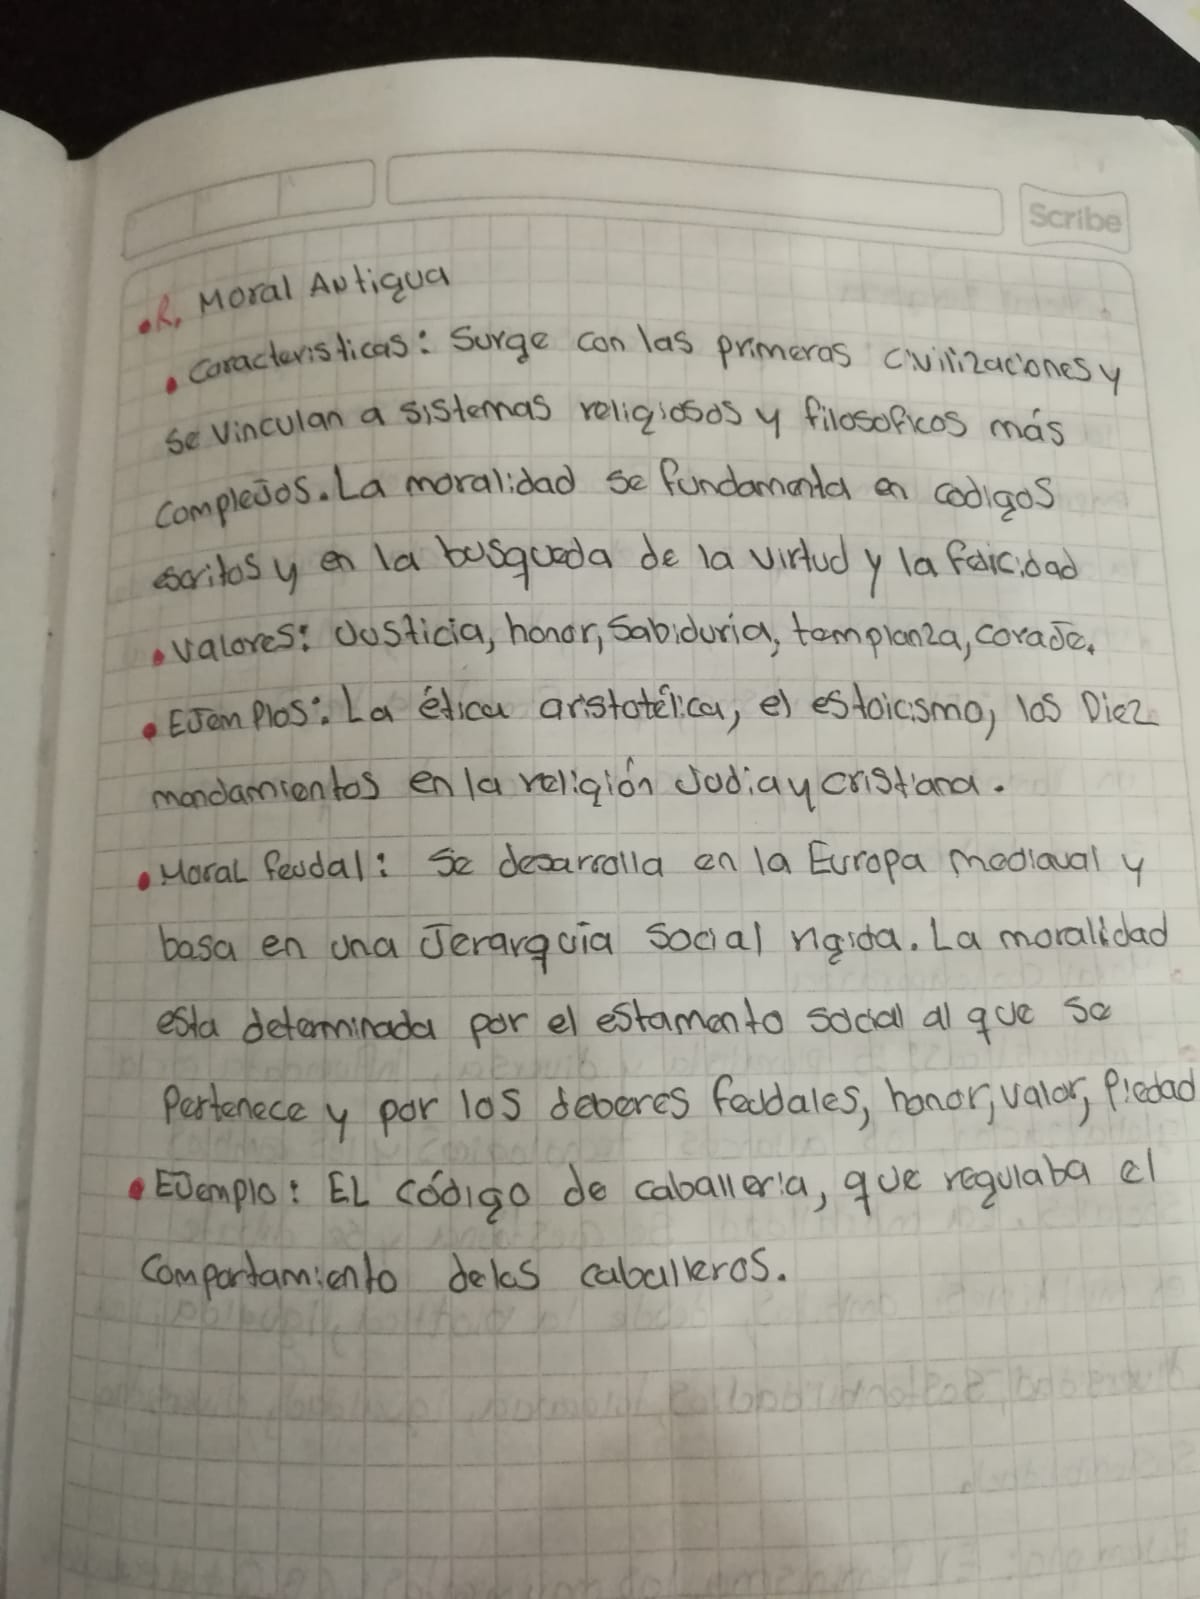 Scribe
•R. Moral Antigua
• Caracteristicas: Surge con las primeras civilizaciones y
se vinculan a sistemas religiosos y filosoficos más
complejos. La moralidad se fundamenta en codigos
escritos y en la busqueda de la virtud y la felicidad
• valores: Justicia, honor, Sabiduria, templanza, coraje.
• Ejemplos: La ética aristotélica, el estoicismo, los Diez
mandamientos en la religión Judia y cristiana.
• Moral feudal: Se desarrolla en la Europa medieval y
basa en una Jerarquia social rigida. La moralidad
esta determinada por el estamento social al que se
Pertenece y por los deberes feudales, honor, valor, Piedad
• Ejemplo: EL código de caballeria, que regulaba el
comportamiento de los caballeros.